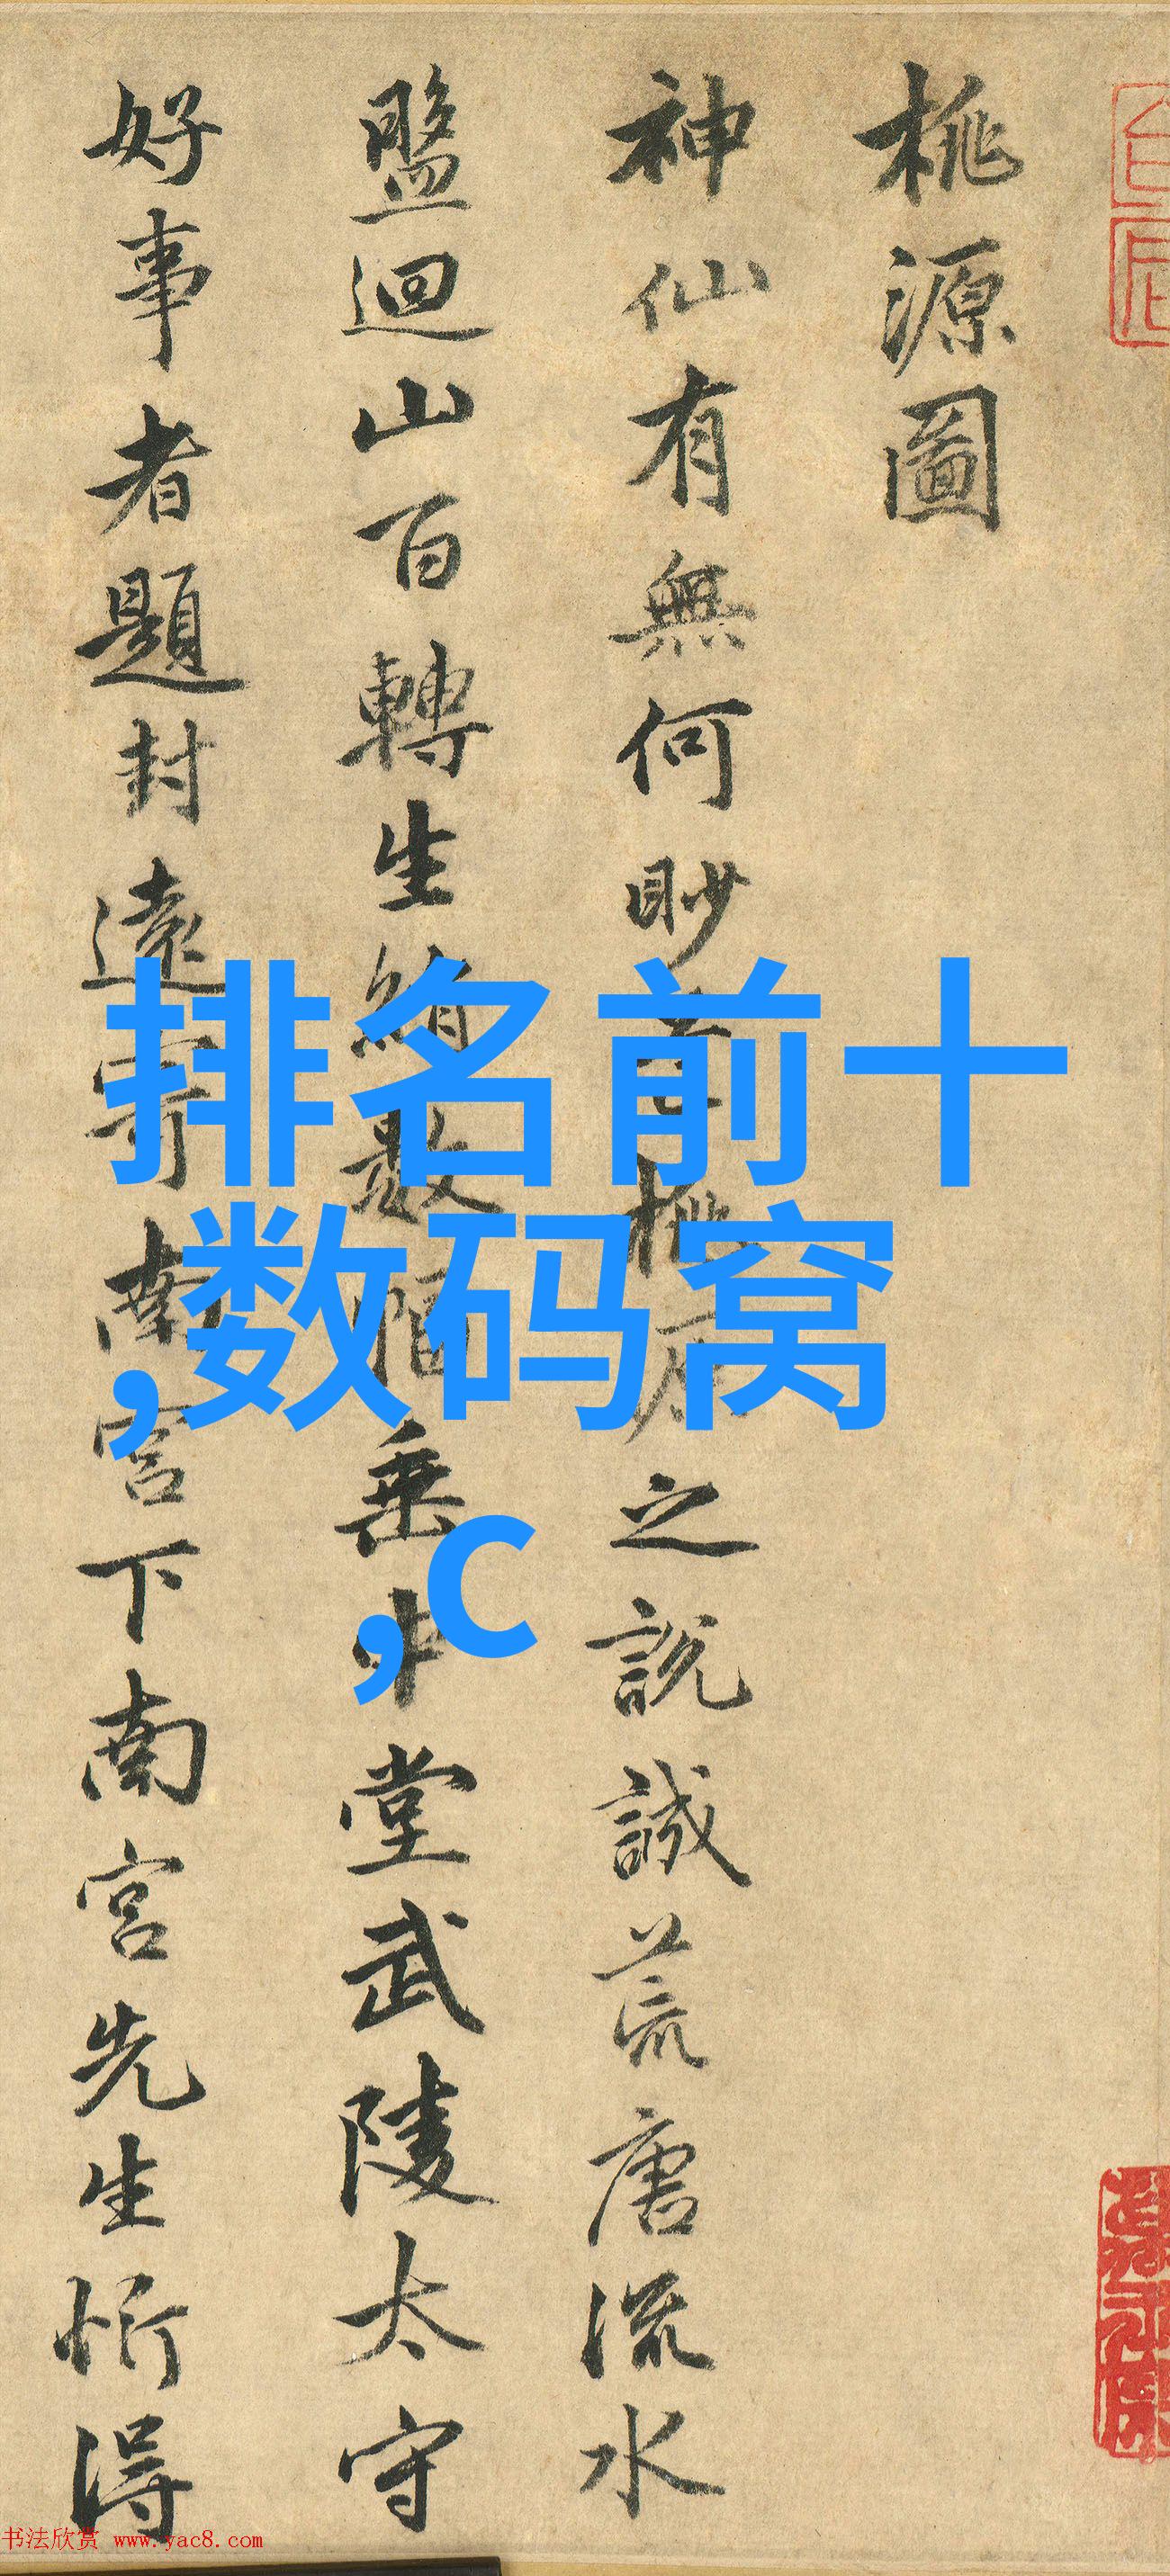 桃源圖
神仙有無何眇桃之說誠荒唐流水
盤迴山百轉生綃數幅垂中堂武陵太守
好事者題封遠寄南宮下南宮先生忻得
排名前十
,数码窝
,c
书法欣赏 www.yac8.com